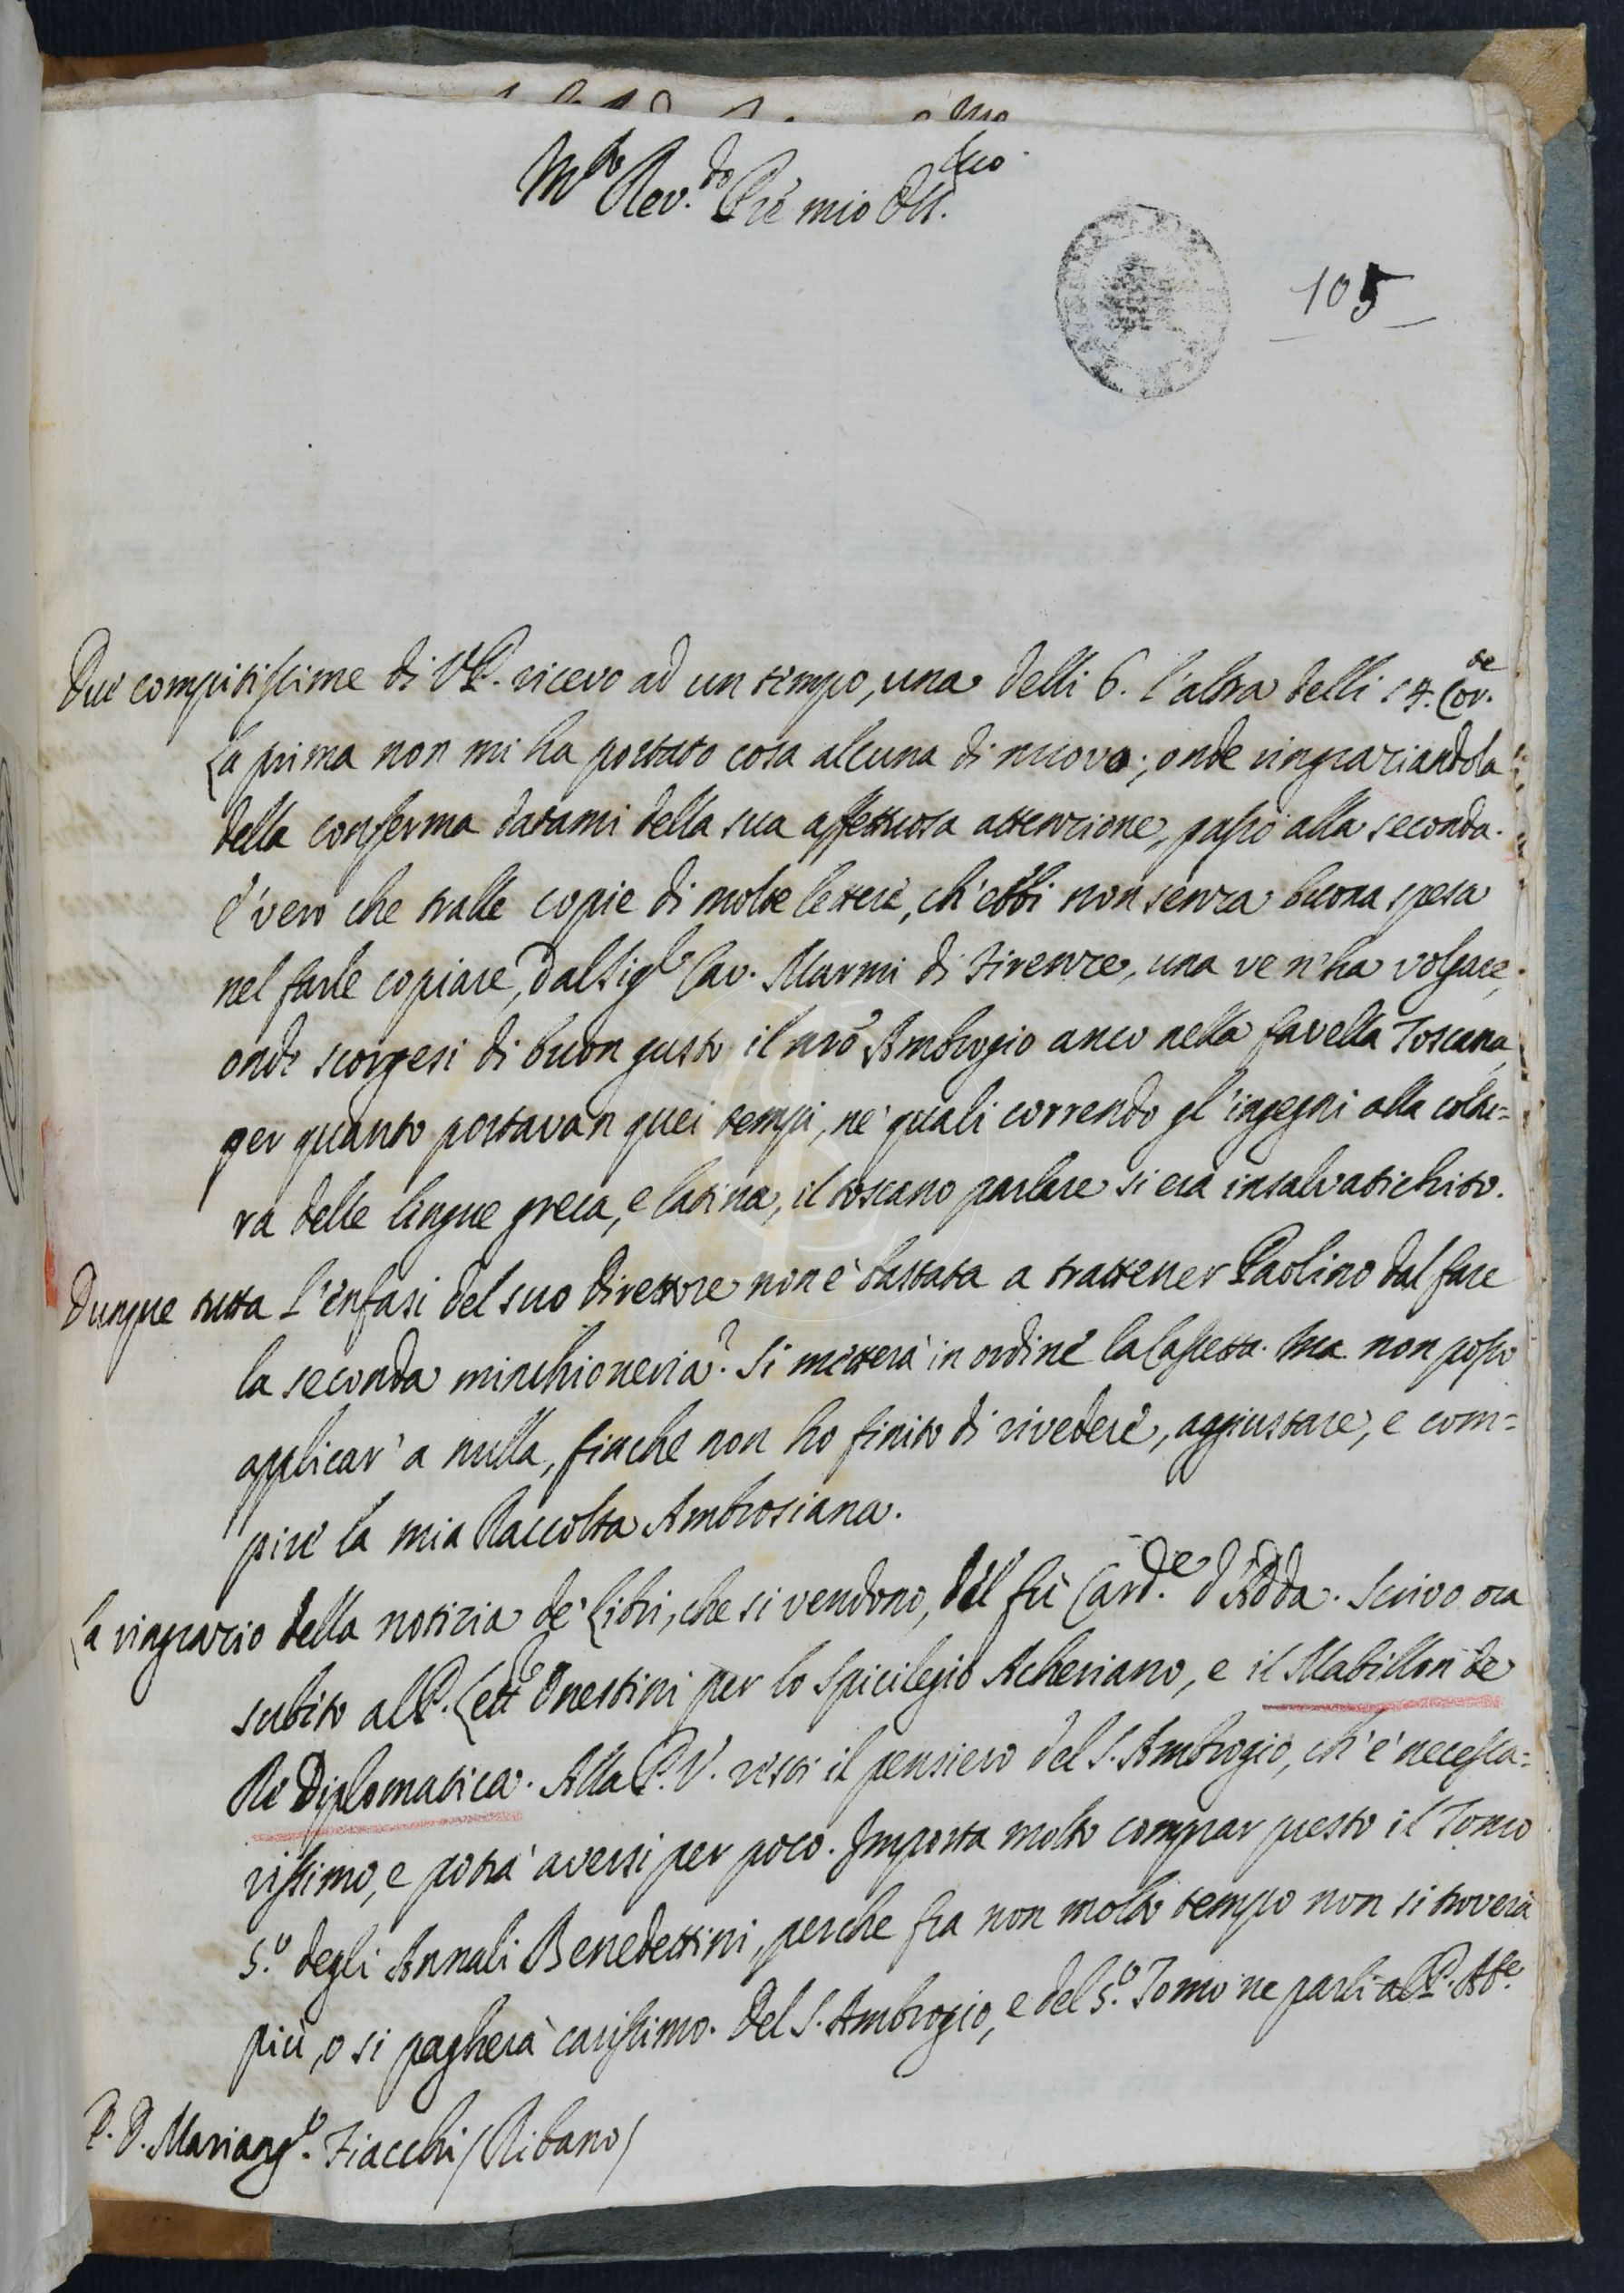 M.to Rev.do Pre mio Oss.mo
105
Due compitissime di V.P. ricevo ad un tempo, una delli 6. l'altra delli 17. Cor.te
La prima non mi ha portato cosa alcuna di nuovo; onde ringraziandola
della conferma datami della sua affettuosa attenzione, passo alla seconda.
E' vero che tralle copie di molte lettere, ch'ebbi non senza buona spesa
nel farle copiare, dal Sig.r Cav. Marmi di Firenze, una ve n'ha volgare,
onde scorgesi di buon gusto il nrõ Ambrogio anco nella favella Toscana,
per quanto portavan quei tempi, ne' quali correndo gl'ingegni alla coltu=
ra delle lingue greca, e latina, il toscano parlare si era insalvatichito.
Dunque tutta l'enfasi del suo direttore non è bastata a trattener Paolino dal fare
la seconda minchioneria? Si metterà in ordine la Cassetta. Ma non posso
applicar' a nulla, finche non ho finito di rivedere, aggiustare, e com=
pire la mia Raccolta Ambrosiana.
La ringrazio della notizia de' Libri, che si vendono, del fù Card.e d'Adda. Scrivo ora
subito al P. Lett.e Onestini per lo Spicilegio Acheriano, e il Mabillon de
Re Diplomatica. Alla P.V. resti il pensiero del S. Ambrogio, ch'è necessa=
rissimo, e potrà aversi per poco. Importa molto comprar presto il Tomo
5.o degli Annali Benedettini, perche fra non molto tempo non si troverà
più, o si pagherà carissimo. Del S. Ambrogio, e del 5.o Tomo ne parli al P. Ab.e
P. D. Mariang.o Fiacchi (Ribano)